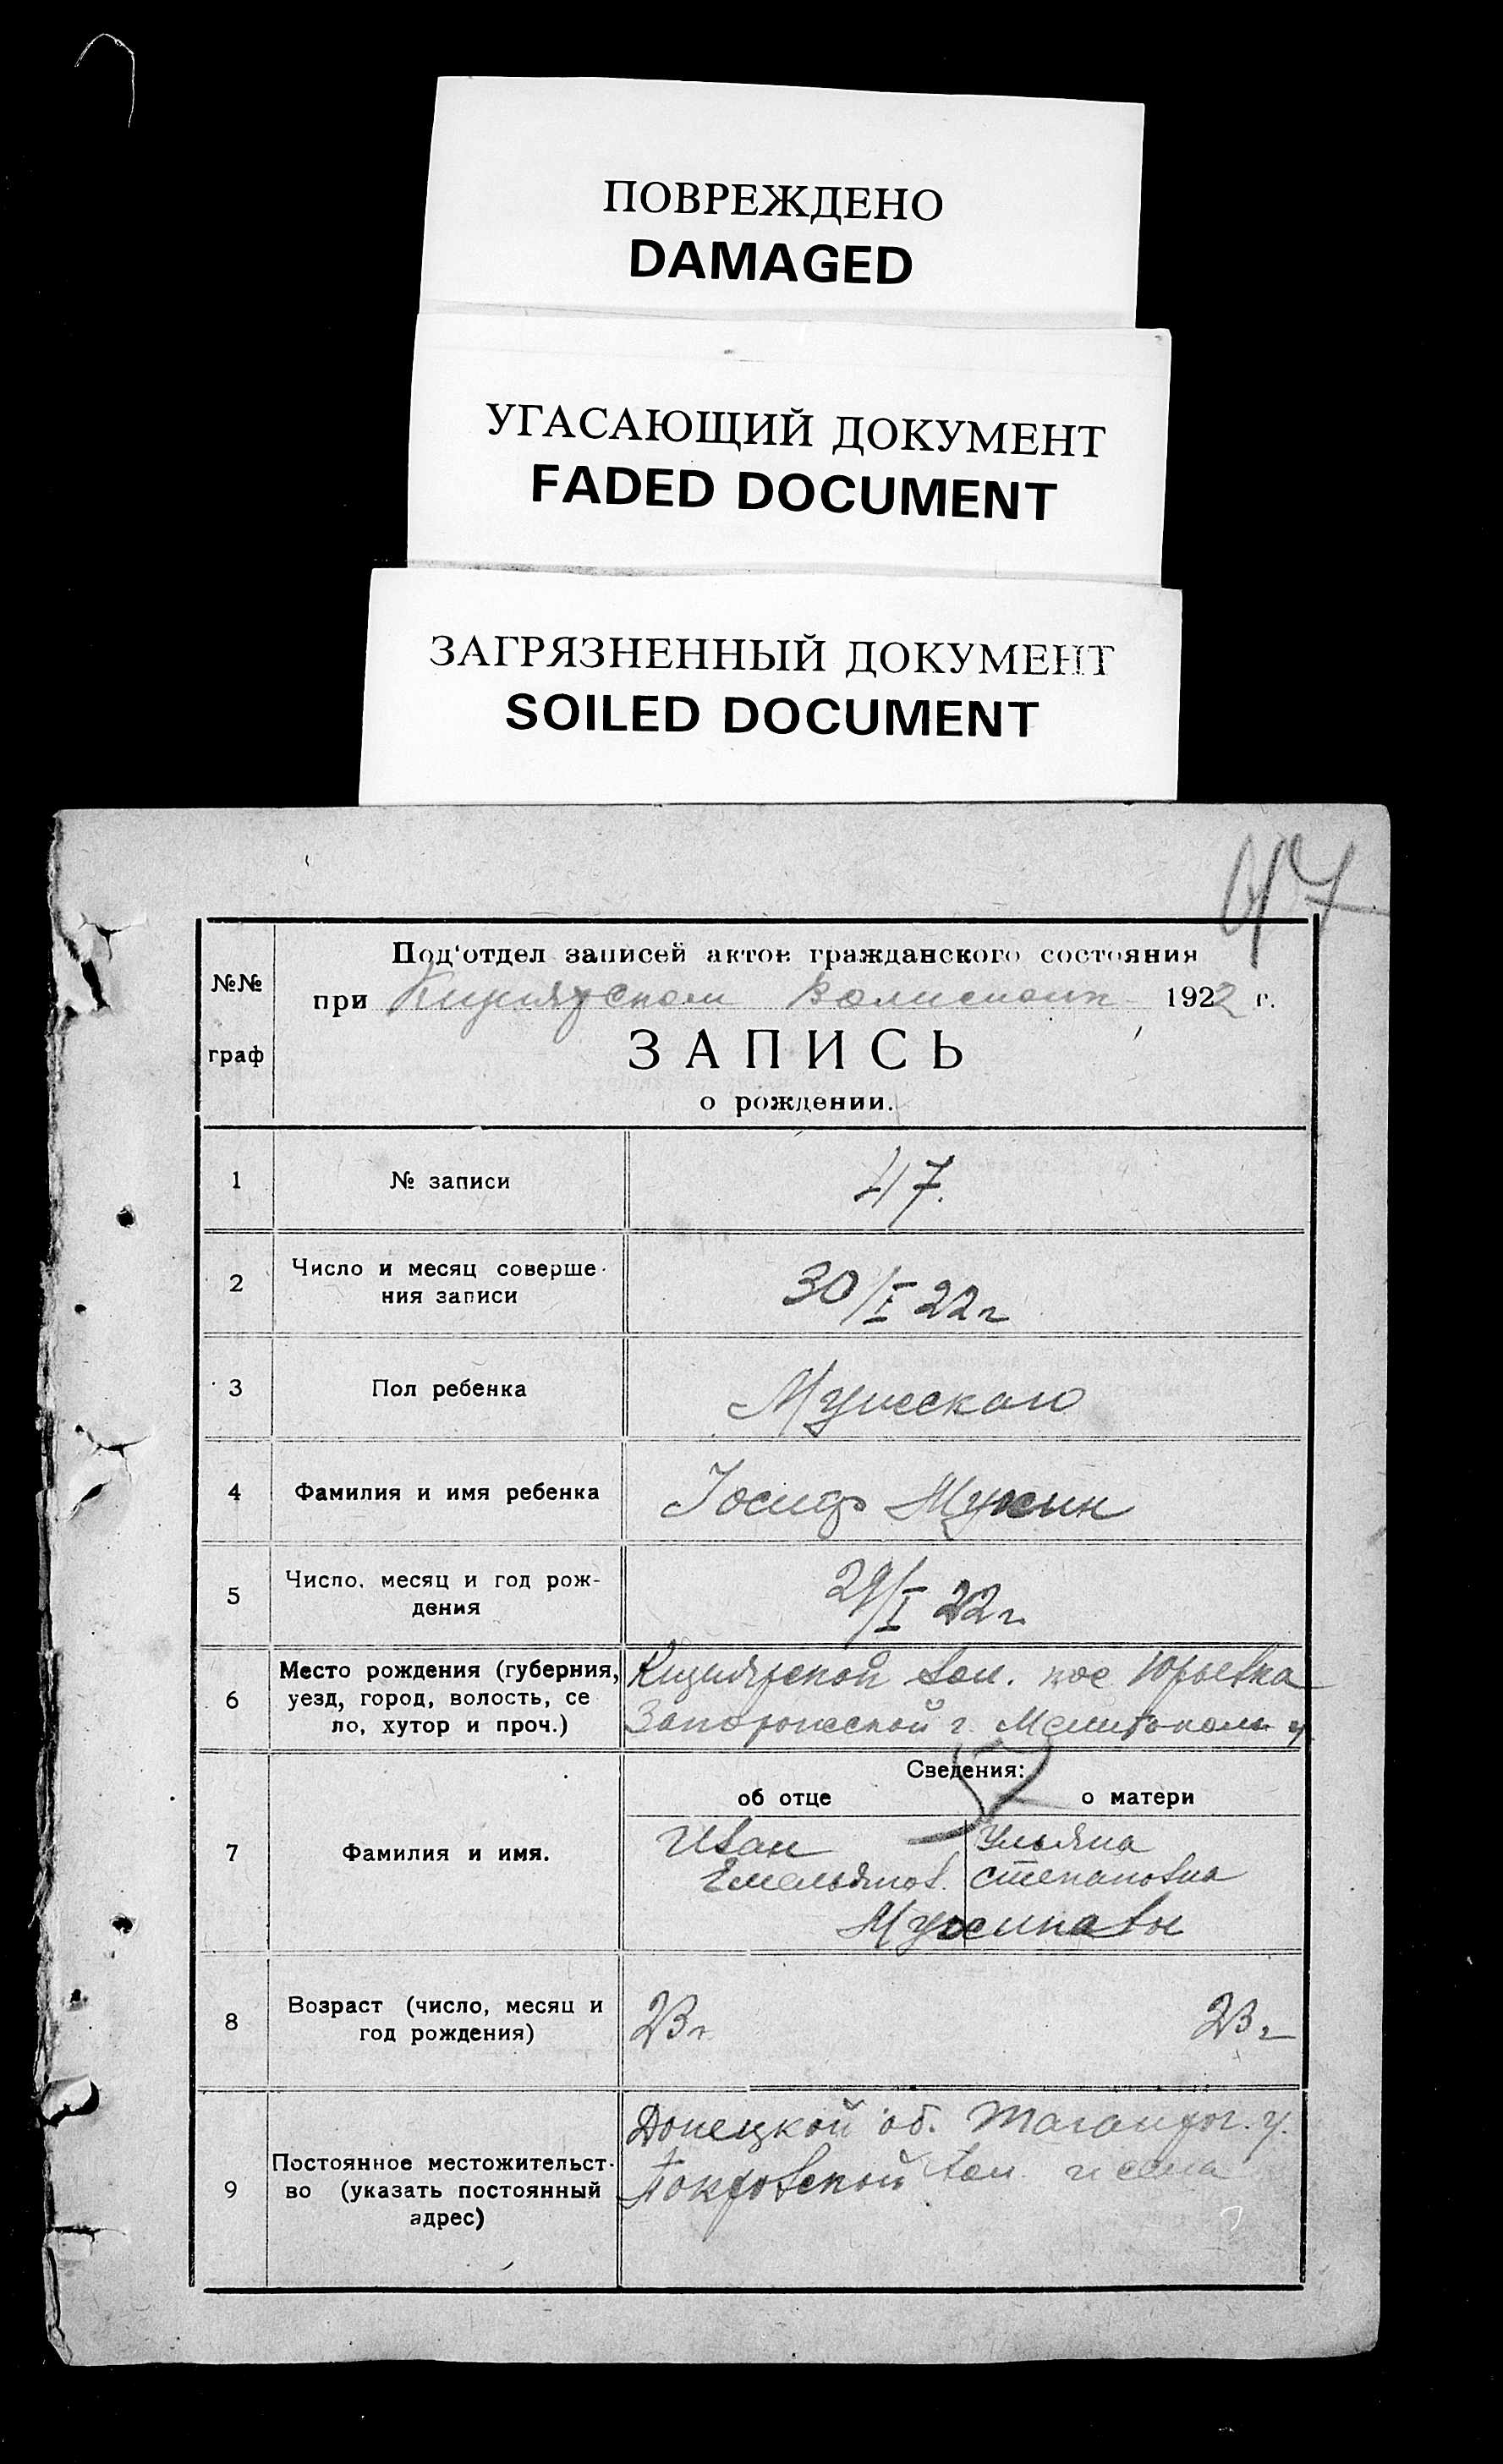 ПОВРЕЖДЕНО
DAMAGED
УГАСАЮЩИЙ ДОКУМЕНТ
FADED DOCUMENT
ЗАГРЯЗНЕННЫЙ ДОКУМЕНТ
SOILED DOCUMENT
47
№№
граф
Под'отдел записей актов гражданского состояния
при Волисполк 1922 г.
ЗАПИСЬ
о рождении.
1 № записи 47.
2 Число и месяц соверше-
ния записи 30/I 22 г
3 Пол ребенка Мужского
4 Фамилия и имя ребенка Іосиф
5 Число, месяц и год рож-
дения 29/I 22 г.
6 Место рождения (губерния,
уезд, город, волость, се
ло, хутор и проч.)
Кизиярской вол. пос Юрьевка
Запорожской г. Мелитополь у
Сведения:
об отце о матери
7 Фамилия и имя.
Иван Ульяна
Емельянов. Степановна
8 Возраст (число, месяц и
год рождения)
23 г. 23 г
9 Постоянное местожительст-
во (указать постоянный
адрес)
Донецкой об. Таганрог. у.
Покровской вол. и села